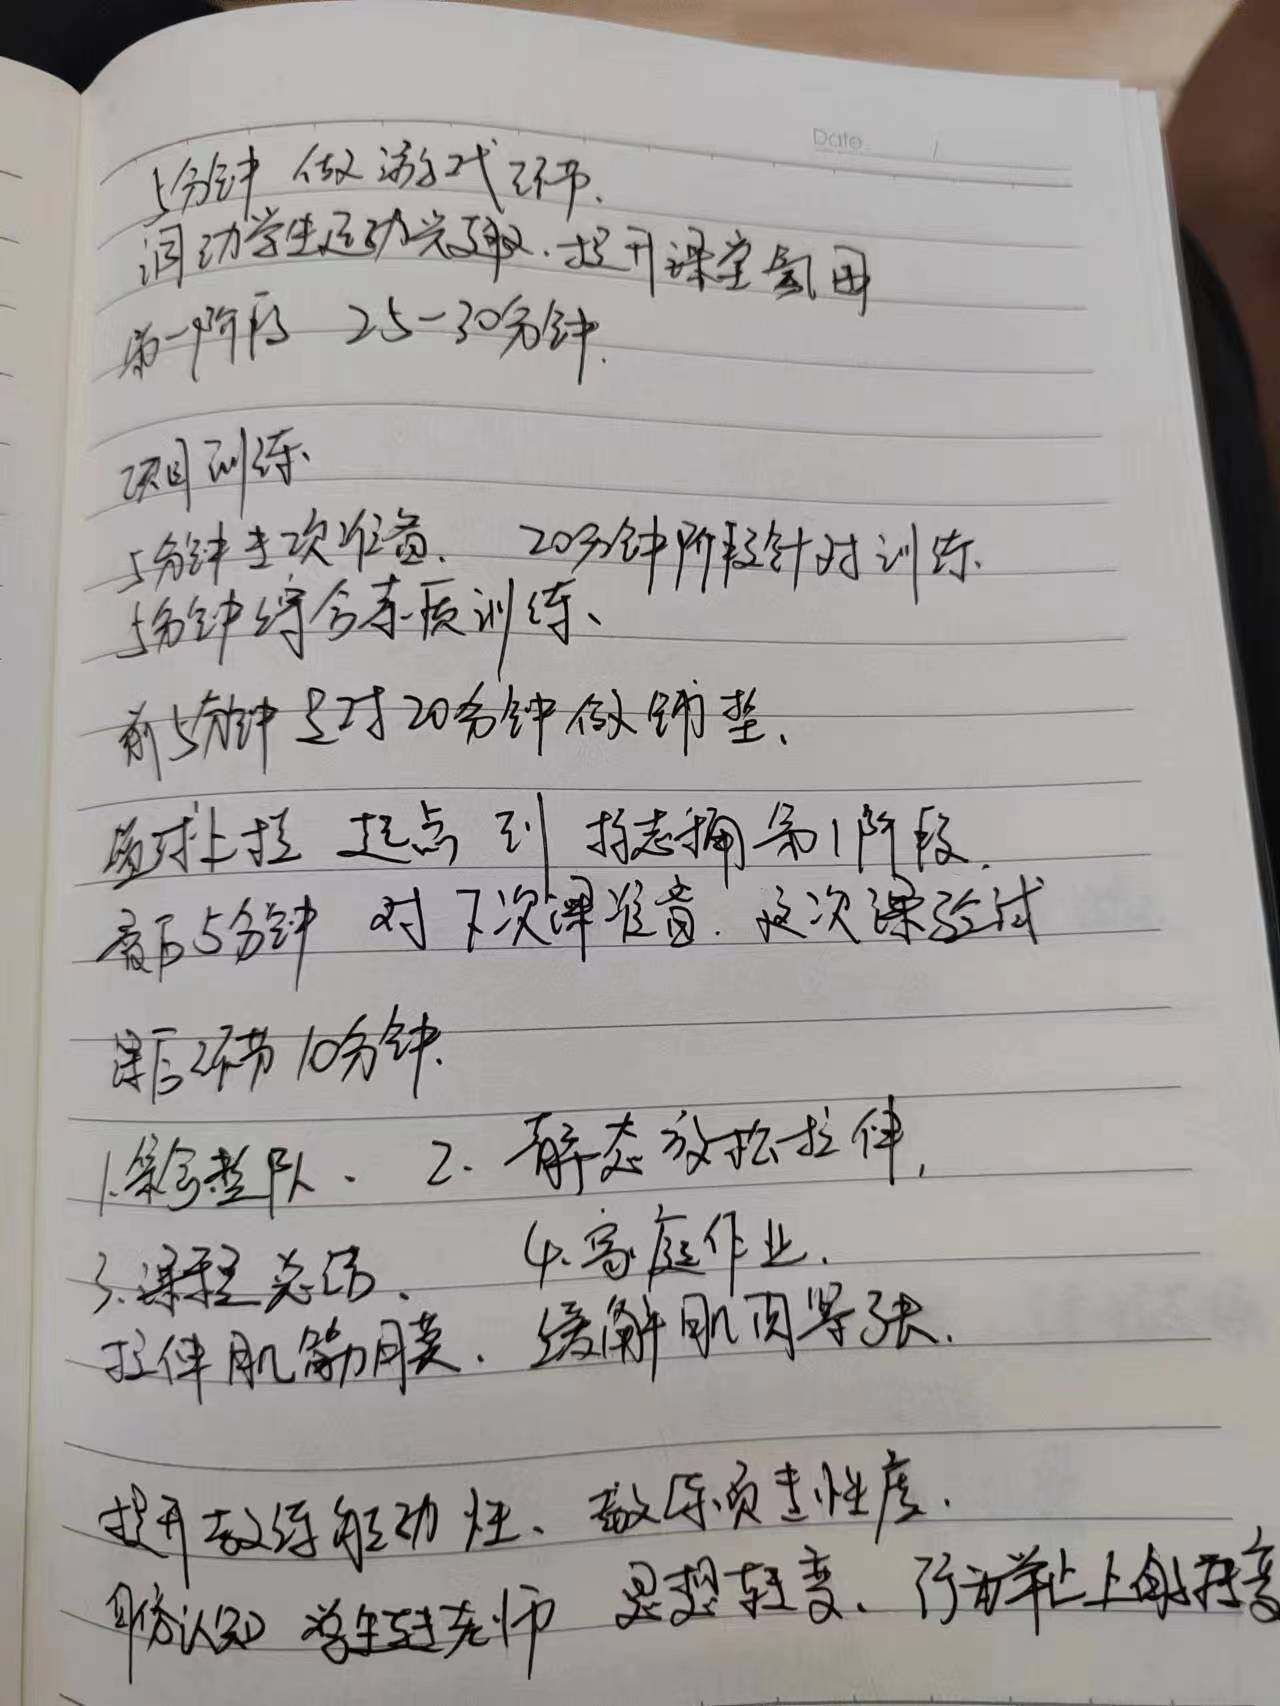 Date /
5分钟 做游戏环节.
调动学生运动兴趣.提升课堂氛围
第一阶段 25-30分钟.
项目训练、
5分钟 次准备. 20分钟阶段针对训练.
5分钟综合素质训练、
前5分钟是对20分钟做铺垫、
对上拉 起点 到 标志桶第1阶段.
最后5分钟 对下次课准备.这次课验试
课后环节10分钟.
1.集合整队、 2. 静态放松拉伸,
3.课程总结、 4.家庭作业.
拉伸肌筋膜. 缓解肌肉紧张.
提升教练能动性、教练负责 度.
身份认知 学生 老师 思想转变、行为举止上的转变